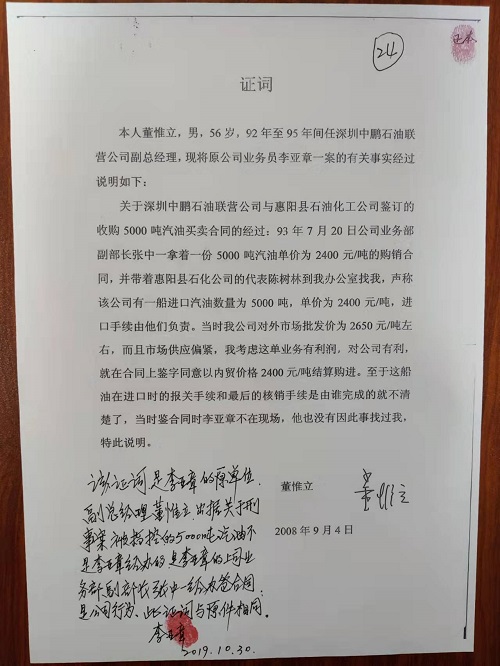 24
证词
本人董惟立，男，56 岁，92 年至 95 年间任深圳中鹏石油联
营公司副总经理，现将原公司业务员李亚章一案的有关事实经过
说明如下：
关于深圳中鹏石油联营公司与惠阳县石油化工公司鉴订的
收购 5000 吨汽油买卖合同的经过：93 年 7 月 20 日公司业务部
副部长张中一拿着一份 5000 吨汽油单价为 2400 元/吨的购销合
同，并带着惠阳县石化公司的代表陈树林到我办公室找我，声称
该公司有一船进口汽油数量为 5000 吨，单价为 2400 元/吨，进
口手续由他们负责。当时我公司对外市场批发价为 2650 元/吨左
右，而且市场供应偏紧，我考虑这单业务有利润，对公司有利，
就在合同上鉴字同意以内贸价格 2400 元/吨结算购进。至于这船
油在进口时的报关手续和最后的核销手续是由谁完成的就不清
楚了，当时鉴合同时李亚章不在现场，他也没有因此事找过我，
特此说明。
董惟立
董惟立
2008 年 9 月 4 日
该证词是李亚章的原单位
副总经理董惟立出据关于刑
事案被指控的5000吨汽油不
是李亚章经办的是李亚章的上司业
务部副部长张中一经办签合同
是公司行为、此证词与原件相同。
李亚章
2019.10.30.